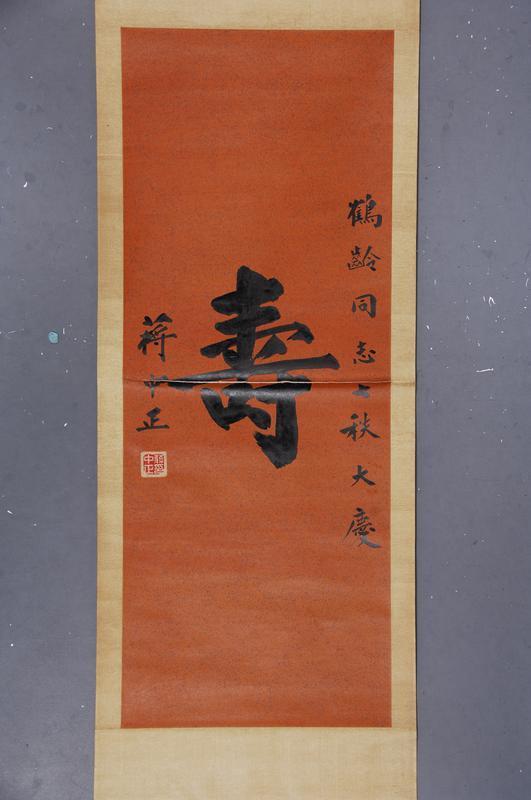 鶴齡同志七秩大慶
壽
蔣中正
中正